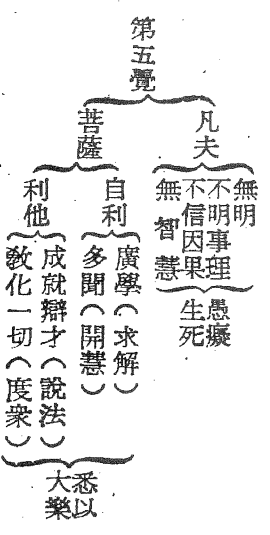 第五覺
凡夫
無明
不明事理
不信因果
無智慧
愚癡
生死
菩薩
自利
廣學（求解）
多聞（開慧）
利他
成就辯才（說法）
教化一切（度衆）
悉以
大樂